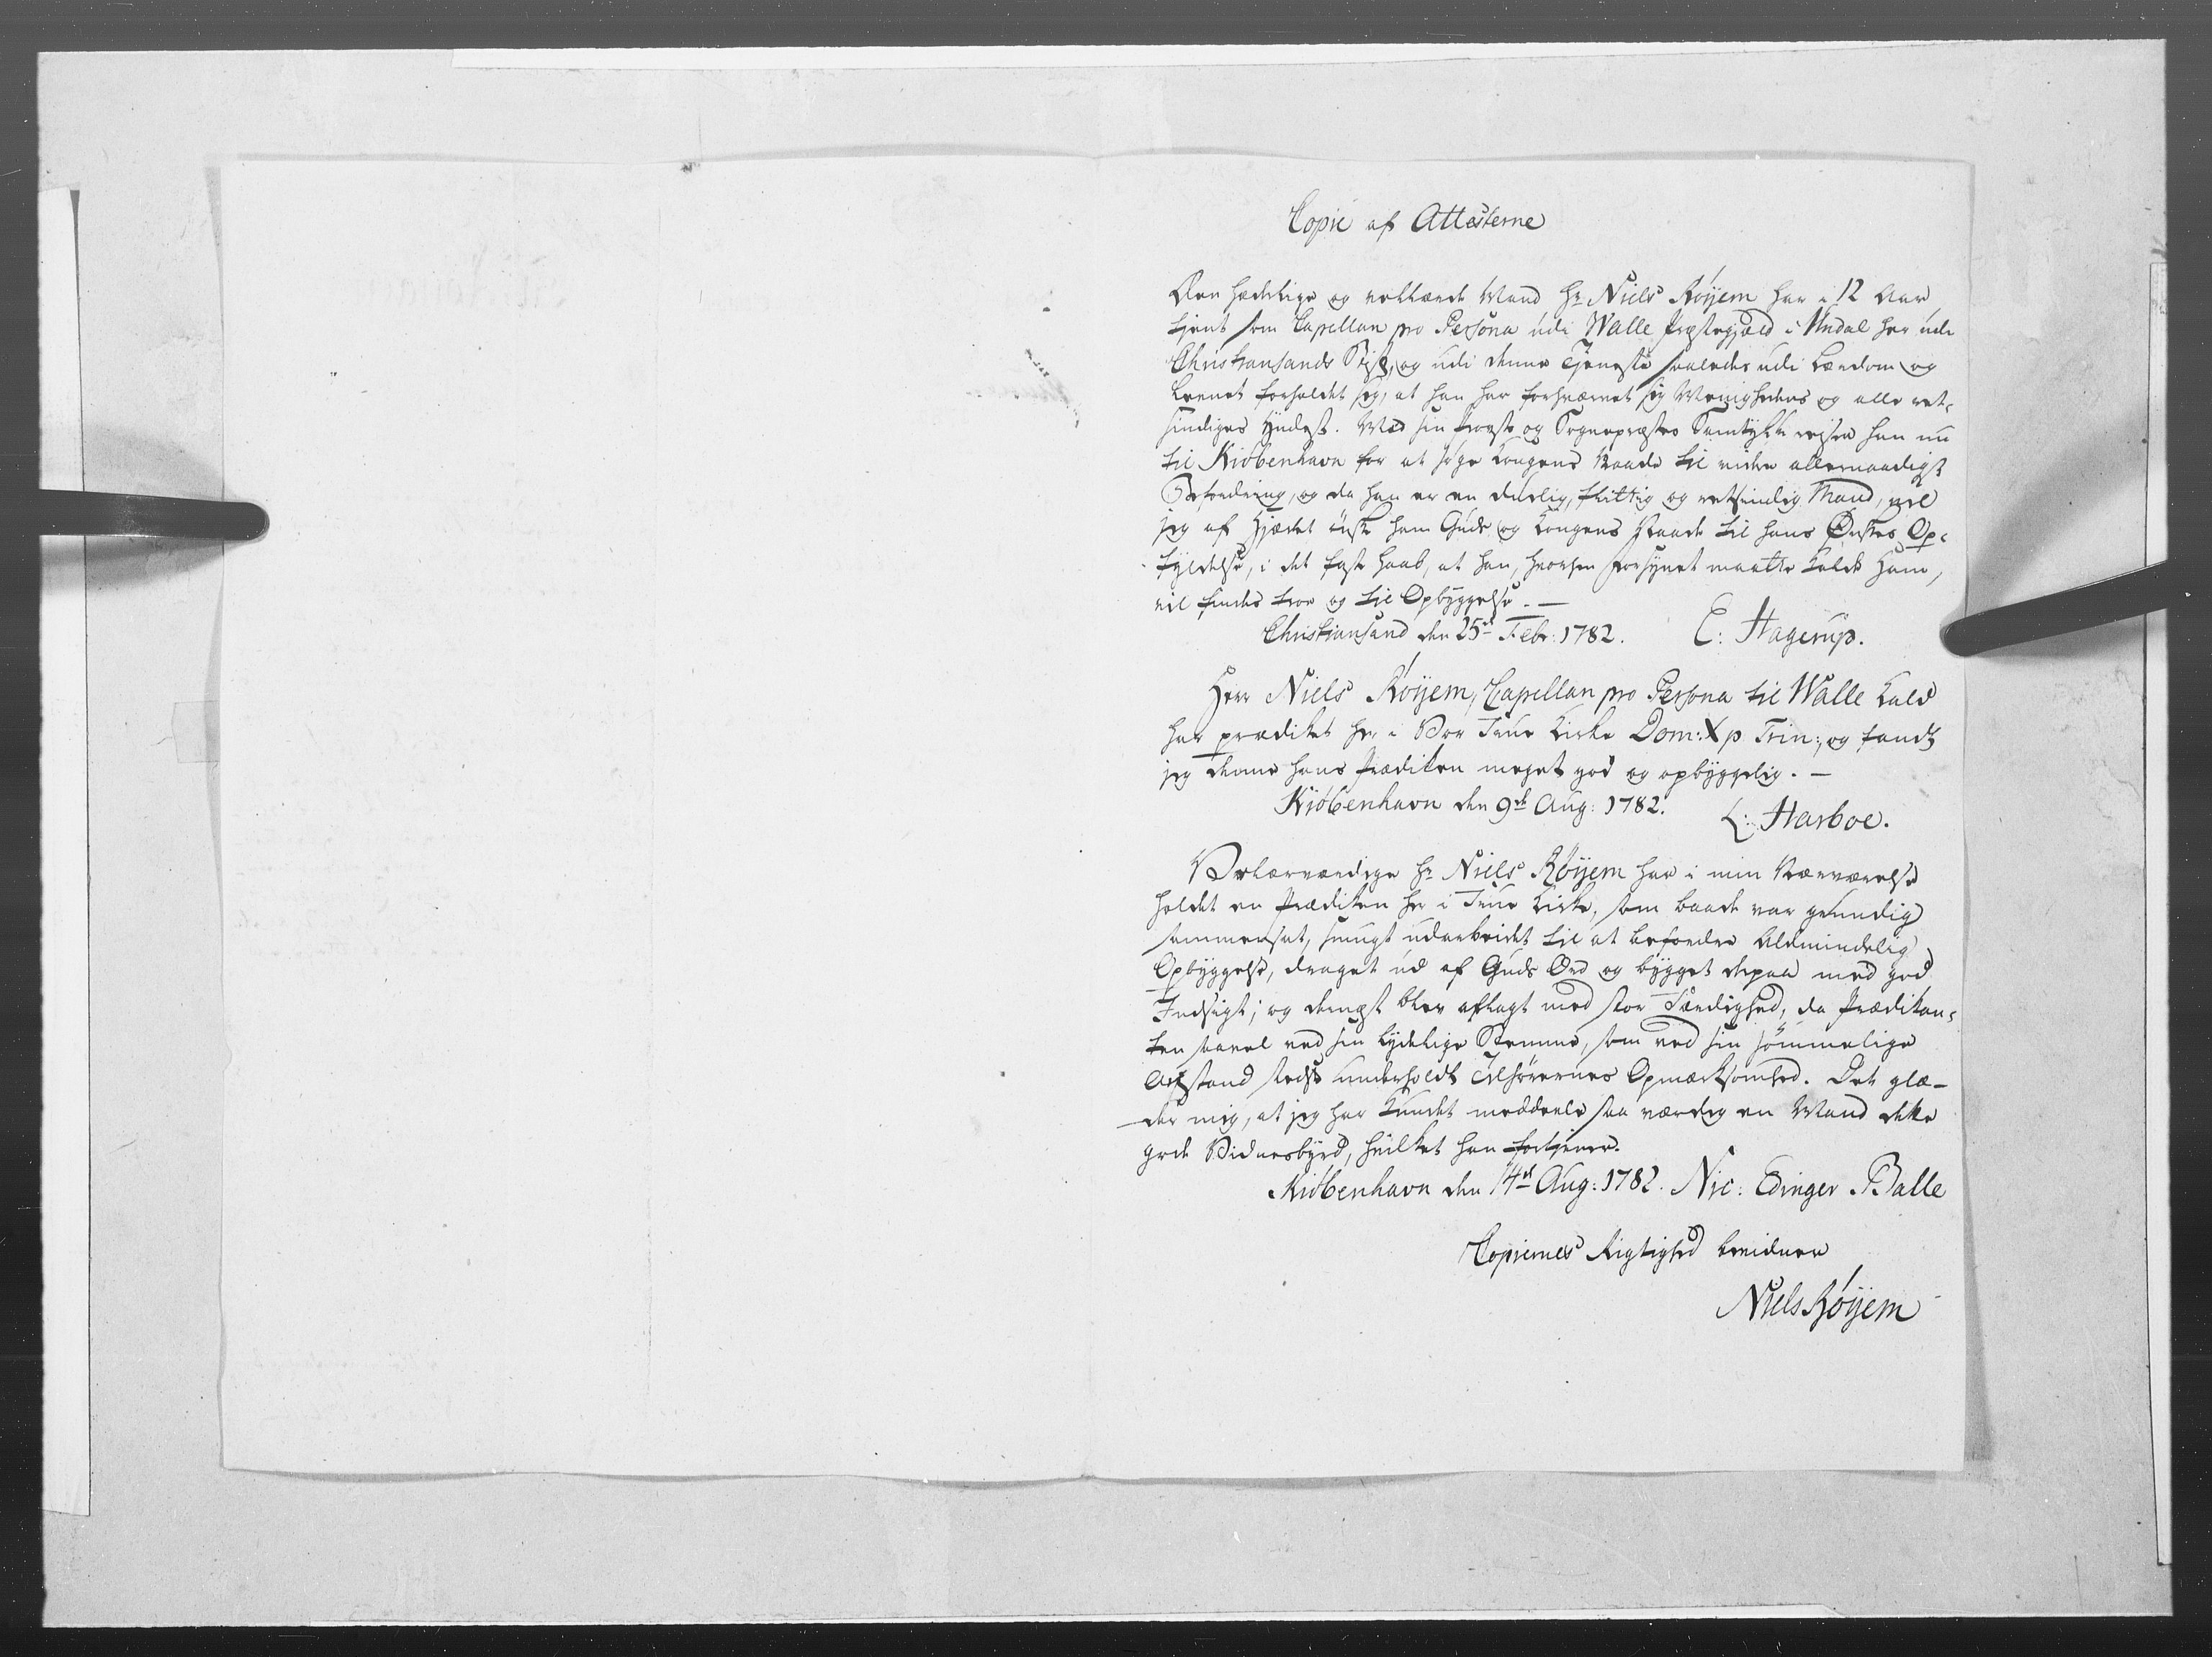 Copie af Attesterne
Den hæderlige og vellærde Mand Hr Niels Röyem har i 12 Aar
tjent som Capellan pro Persona udi Walle Præstegjæld i Undal her udi
Christiansands Stift, og udi denne Tjeneste saaledes udi Lærdom og
Levnet forholdet sig, at han har forhvervet sig Menighedens og alle ret-
sindiges Yndest. Med sin Provst og Sognepræstes Samtykke reiser han nu
til Kiöbenhavn for at söge Kongens Naade til videre allernaadigst
Befordring, og da han er en duelig, flittig og retsindig Mand, vil
jeg af Hjertet önske ham Guds og Kongens Naade til hans Önskes Op-
fyldelse, i det faste Haab, at han, hvorhen Forsynet maatte kalde ham,
vil findes troe og til Opbyggelse. —
Christiansand den 25de Febr: 1782. E: Hagerup.
Herr Niels Röyem, Capellan pro Persona til Walle Kald
har prædiket her i Vor Frue Kirke Dom: X p Trin:, og fandt
jeg denne hans Prædiken meget god og opbyggelig. —
Kiöbenhavn den 9de Aug: 1782. L: Harboe.
Velærværdige Hr Niels Röyem har i min Nærværelse
holdet en Prædiken her i Frue Kirke, som baade var grundig
sammensat, smugt udarbeidet til at befordre Almindelig
Opbyggelse, draget ud af Guds Ord og bygget derpaa med god
Indsigt; og dernæst blev aflagt med stor Færdighed, da Prædikan-
ten saavel ved sin lydelige Stemme, som ved sin sömmelige
Anstand stedse underholdt Tilhörernes Opmærksomhed. Det glæ-
der mig, at jeg har kundet meddeele saa værdig en Mand dette
gode Vidnesbyrd, hvilket han fortjener.
Kiöbenhavn den 14de Aug: 1782. Nic: Edinger Balle
Copiernes Rigtighed bevidner
Niels Röyem